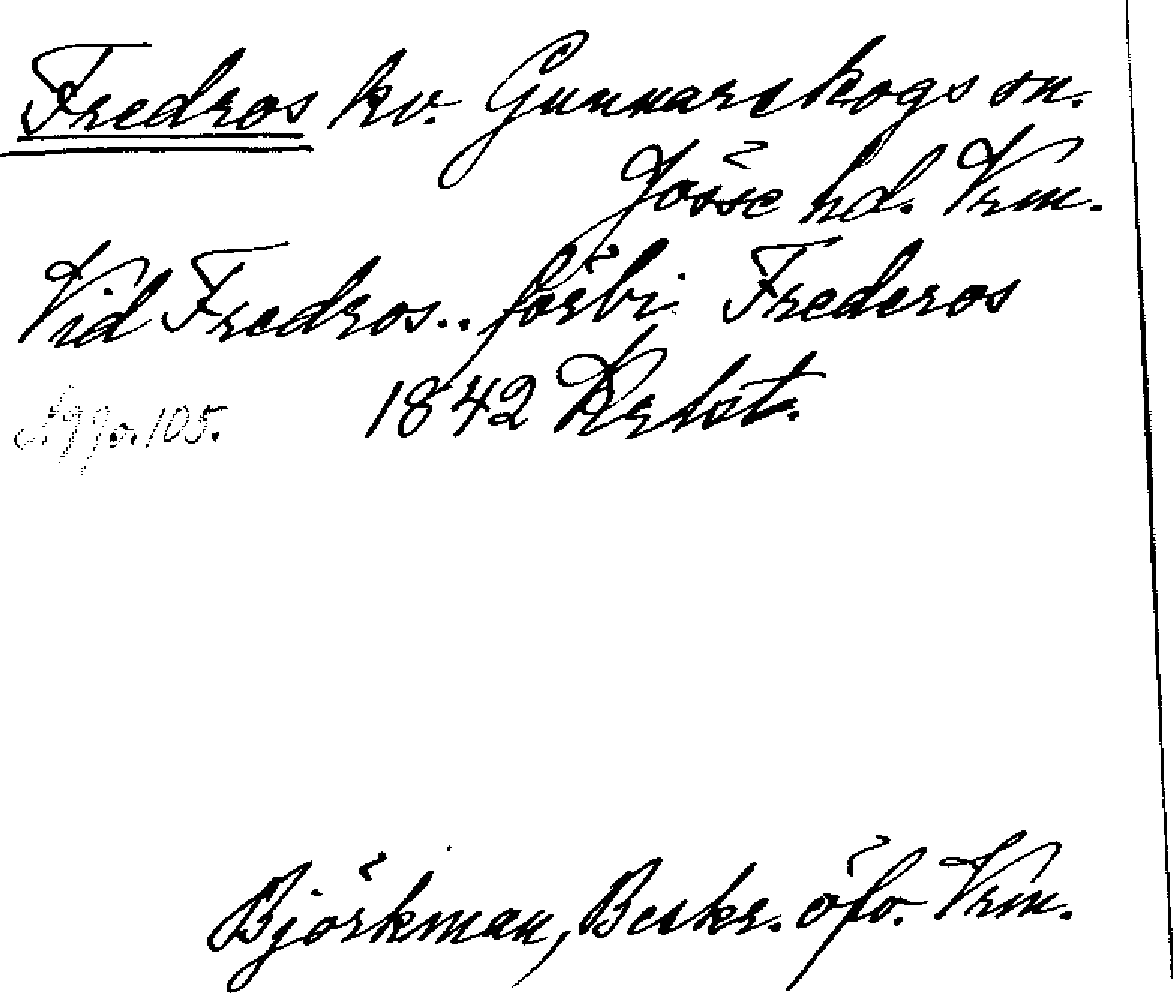 Fredros kv. Gunnarskogs sn.
Jösse hd. Vrm.
Vid Fredros.. förbi Frederos
1842
105.
Björkman, Beskr. öfv. Vrm.